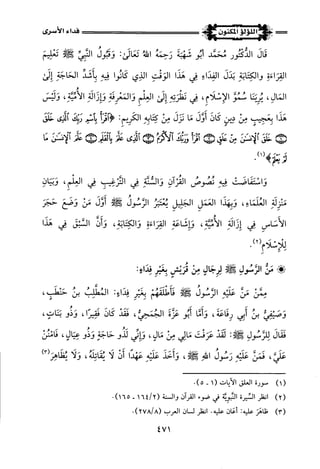 اللؤلؤ المكنون
فداء الأسرى
قَالَ الدُّكْتُور مُحَمَّد أبُو شَهْبَة رَحِمَهُ اللهُ تَعَالَى: وَقَبُولُ النَّبِيِّ ﷺ تَعْلِيمَ
القِرَاءَةِ والكِتَابَةِ بَدَلَ الفِدَاءِ فِي هَذَا الوَقْتِ الذِي كَانُوا فِيهِ بِأَشَدِّ الحَاجَةِ إِلَى
المَالِ، يُرِينَا سُمُوَّ الإِسْلَامِ، فِي نَظْرَتِهِ إِلَى العِلْمِ والمَعْرِفَةِ وَإِزَالَةِ الأُمِّيَّةِ، وَلَيْسَ
هَذَا بِعَجِيبٍ مِنْ دِينٍ كَانَ أَوَّلَ مَا نَزَلَ مِنْ كِتَابِهِ الكَرِيمِ: ﴿اقْرَأْ بِاسْمِ رَبِّكَ الَّذِي خَلَقَ
۝ خَلَقَ الْإِنسَانَ مِنْ عَلَقٍ ۝ اقْرَأْ وَرَبُّكَ الْأَكْرَمُ ۝ الَّذِي عَلَّمَ بِالْقَلَمِ ۝ عَلَّمَ الْإِنسَانَ مَا
لَمْ يَعْلَمْ﴾(١).
وَاسْتَفَاضَتْ فِيهِ نُصُوصُ القُرْآنِ وَالسُّنَّةِ فِي التَّرْغِيبِ فِي العِلْمِ، وَبَيَانِ
مَنْزِلَةِ العُلَمَاءِ، وَبِهَذَا العَمَلِ الجَلِيلِ يُعْتَبَرُ الرَّسُولُ ﷺ أَوَّلَ مَنْ وَضَعَ حَجَرَ
الأَسَاسِ فِي إِزَالَةِ الأُمِّيَّةِ، وَإِشَاعَةِ القِرَاءَةِ وَالكِتَابَةِ، وَأَنَّ السَّبْقَ فِي هَذَا
لِلْإِسْلَامِ(٢).
* مَنُّ الرَّسُولِ ﷺ لِرِجَالٍ مِنْ قُرَيْشٍ بِغَيْرِ فِدَاءٍ:
مِمَّنْ مَنَّ عَلَيْهِ الرَّسُولُ ﷺ فَأَطْلَقَهُمْ بِغَيْرِ فِدَاءٍ: المُطَّلِبُ بنُ حَنْطَبٍ،
وَصَيْفِيُّ بنُ أَبِي رِفَاعَةَ، وَأَمَّا أَبُو عَزَّةَ الجُمَحِيُّ، فَقَدْ كَانَ فَقِيرًا، وَذُو بَنَاتٍ،
فَقَالَ لِلرَّسُولِ ﷺ: لَقَدْ عَرَفْتَ مَالِي مِنْ مَالٍ، وَإِنِّي لَذُو حَاجَةٍ وَذُو عِيَالٍ، فَامْنُنْ
عَلَيَّ، فَمَنَّ عَلَيْهِ رَسُولُ اللهِ ﷺ، وَأَخَذَ عَلَيْهِ عَهْدًا أَنْ لَا يُقَاتِلَهُ، وَلَا يُظَاهِرَ(٣)
(١) سورة العلق الآيات (١ - ٥).
(٢) انظر السيرة النبوية في ضوء القرآن والسنة (٢/١٦٤ - ١٦٥).
(٣) ظاهَرَ عليه: أعان عليه. انظر لسان العرب (٨/٢٧٨).
٤٧١